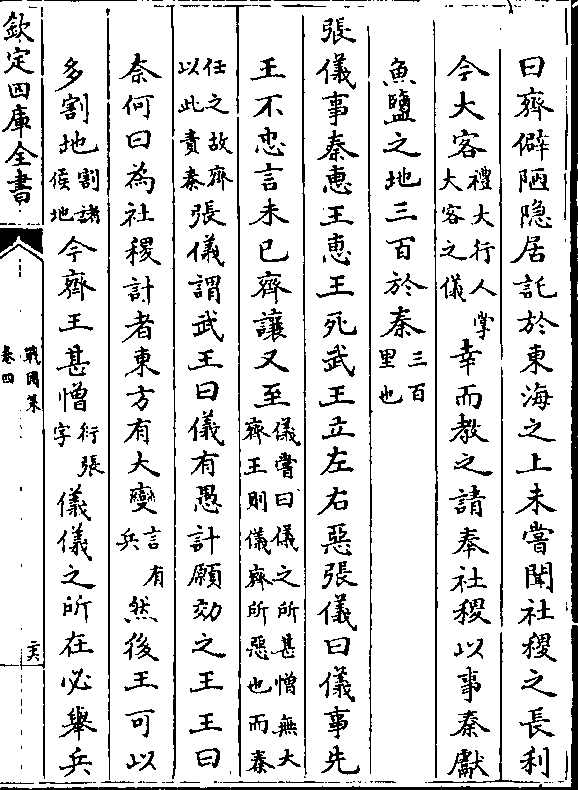 曰齊僻陋隱居託於東海之上未嘗聞社稷之長利
今大客禮大行人掌大客之儀幸而教之請奉社稷以事秦獻
魚鹽之地三百於秦三百里也
張儀事秦惠王惠王死武王立左右惡張儀曰儀事先
王不忠言未已齊讓又至儀嘗曰儀之所甚憎無大齊王則儀齊所惡也而秦
任之故齊以此責秦張儀謂武王曰儀有愚計願効之王王曰
奈何曰為社稷計者東方有大變言有兵然後王可以
多割地割諸侯地今齊王甚憎衍張字儀儀之所在必舉兵
欽定四庫全書
戰國策
卷四
二六